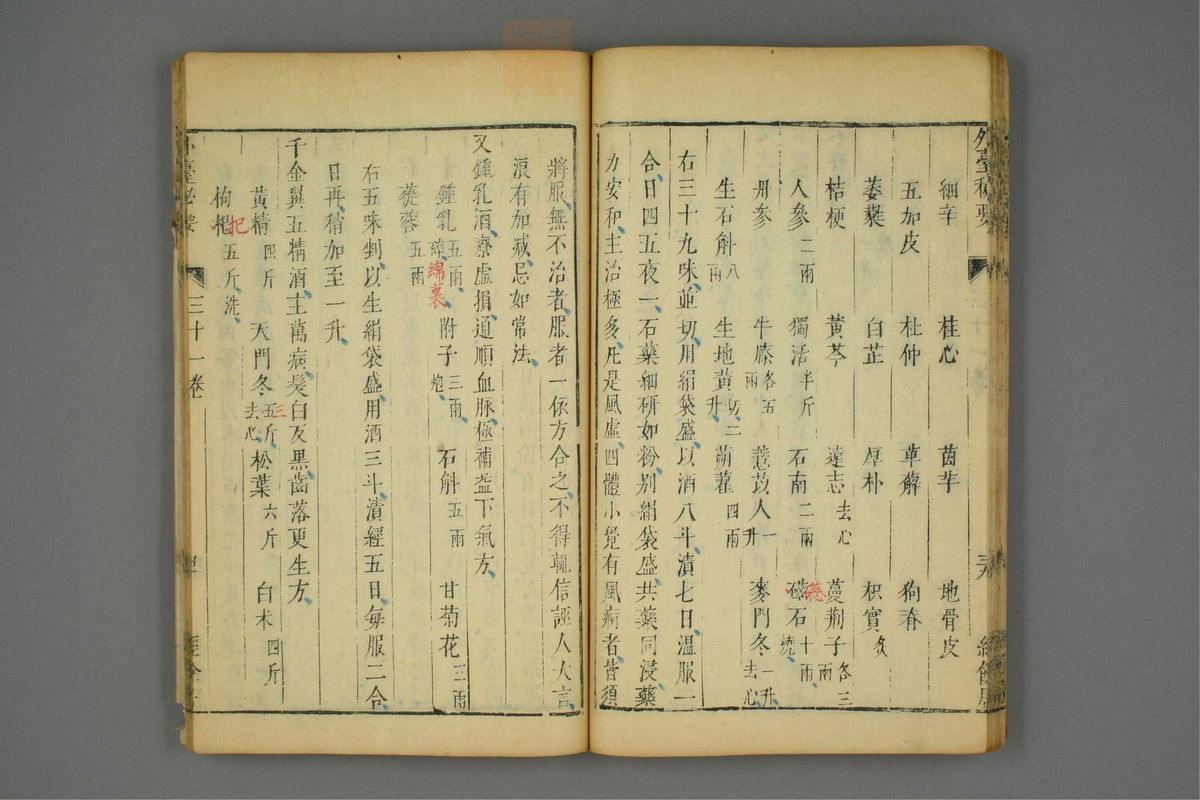 外臺秘要 三十一卷 經餘居
細辛 桂心 茵芋 地骨皮
五加皮 杜仲 萆薢 狗脊
萎蕤 白芷 厚朴 枳實炙
桔梗 黃芩 遠志去心 蔓荆子各三兩
人參二兩 獨活半斤 石南二兩 磁石十兩燒
丹參 牛膝各五兩 薏苡人一升 麥門冬一升去心
生石斛八兩 生地黃切二升 蒴藋四兩
右三十九味並切用絹袋盛以酒八斗漬七日温服一
合日四五夜一石藥細研如粉别絹袋盛共藥同浸藥
力安和主治極多凡是風虛四體小覺有風痾者皆須
將服無不治者服者一依方合之不得輒信誑人大言
浪有加减忌如常法
又鍾乳酒療虛損通順血脉極補益下氣方
鍾乳五兩碎綿裹 附子三兩炮 石斛五兩 甘菊花三兩
蓯蓉五兩
右五味剉以生絹袋盛用酒三斗漬經五日每服二合
日再稍加至一升
千金翼五精酒主萬病髮白反黑齒落更生方
黃精四斤 天門冬三五斤去心 松葉六斤 白术四斤
枸杞五斤洗
外臺秘要 三十一卷